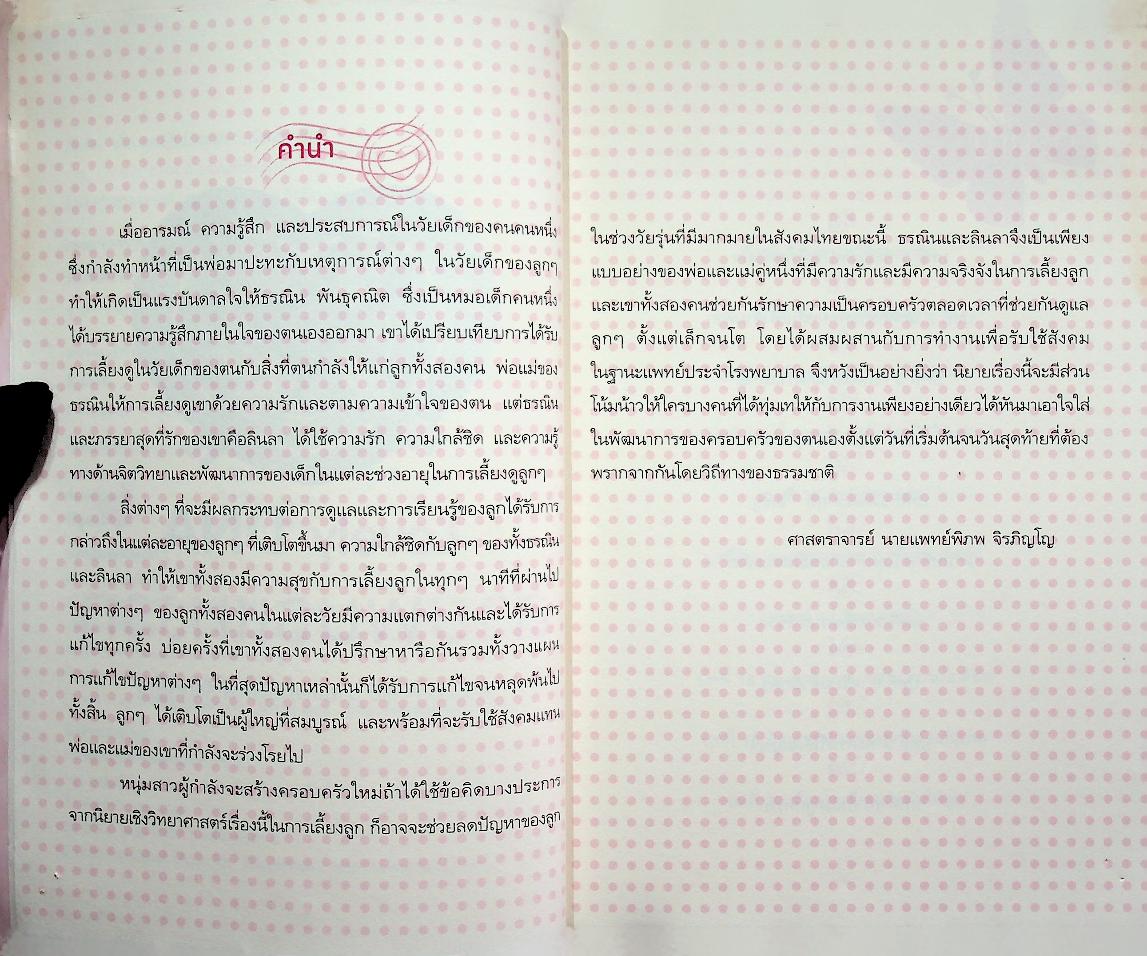 คำนำ
เมื่ออารมณ์ ความรู้สึก และประสบการณ์ในวัยเด็กของคนคนหนึ่ง
ซึ่งกำลังทำหน้าที่เป็นพ่อมาปะทะกับเหตุการณ์ต่างๆ ในวัยเด็กของลูกๆ
ทำให้เกิดเป็นแรงบันดาลใจให้ธรณิน พันธุคณิต ซึ่งเป็นหมอเด็กคนหนึ่ง
ได้บรรยายความรู้สึกภายในใจของตนเองออกมา เขาได้เปรียบเทียบการได้รับ
การเลี้ยงดูในวัยเด็กของตนกับสิ่งที่ตนกำลังให้แก่ลูกทั้งสองคน พ่อแม่ของ
ธรณินให้การเลี้ยงดูเขาด้วยความรักและตามความเข้าใจของตน แต่ธรณิน
และภรรยาสุดที่รักของเขาคือลินลา ได้ใช้ความรัก ความใกล้ชิด และความรู้
ทางด้านจิตวิทยาและพัฒนาการของเด็กในแต่ละช่วงอายุในการเลี้ยงดูลูกๆ
สิ่งต่างๆ ที่จะมีผลกระทบต่อการดูแลและการเรียนรู้ของลูกได้รับการ
กล่าวถึงในแต่ละอายุของลูกๆ ที่เติบโตขึ้นมา ความใกล้ชิดกับลูกๆ ของทั้งธรณิน
และลินลา ทำให้เขาทั้งสองมีความสุขกับการเลี้ยงลูกในทุกๆ นาทีที่ผ่านไป
ปัญหาต่างๆ ของลูกทั้งสองคนในแต่ละวัยมีความแตกต่างกันและได้รับการ
แก้ไขทุกครั้ง บ่อยครั้งที่เขาทั้งสองคนได้ปรึกษาหารือกันรวมทั้งวางแผน
การแก้ไขปัญหาต่างๆ ในที่สุดปัญหาเหล่านั้นก็ได้รับการแก้ไขจนหลุดพ้นไป
ทั้งสิ้น ลูกๆ ได้เติบโตเป็นผู้ใหญ่ที่สมบูรณ์ และพร้อมที่จะรับใช้สังคมแทน
พ่อและแม่ของเขาที่กำลังจะร่วงโรยไป
หนุ่มสาวผู้กำลังจะสร้างครอบครัวใหม่ถ้าได้ใช้ข้อคิดบางประการ
จากนิยายเชิงวิทยาศาสตร์เรื่องนี้ในการเลี้ยงลูก ก็อาจจะช่วยลดปัญหาของลูก
ในช่วงวัยรุ่นที่มีมากมายในสังคมไทยขณะนี้ ธรณินและลินลาจึงเป็นเพียง
แบบอย่างของพ่อและแม่คู่หนึ่งที่มีความรักและมีความจริงจังในการเลี้ยงลูก
และเขาทั้งสองคนช่วยกันรักษาความเป็นครอบครัวตลอดเวลาที่ช่วยกันดูแล
ลูกๆ ตั้งแต่เล็กจนโต โดยได้ผสมผสานกับการทำงานเพื่อรับใช้สังคม
ในฐานะแพทย์ประจำโรงพยาบาล จึงหวังเป็นอย่างยิ่งว่า นิยายเรื่องนี้จะมีส่วน
โน้มน้าวให้ใครบางคนที่ได้ทุ่มเทให้กับการงานเพียงอย่างเดียวได้หันมาเอาใจใส่
ในพัฒนาการของครอบครัวของตนเองตั้งแต่วันที่เริ่มต้นจนวันสุดท้ายที่ต้อง
พรากจากกันโดยวิถีทางของธรรมชาติ
ศาสตราจารย์ นายแพทย์พิภพ จิรภิญโญ